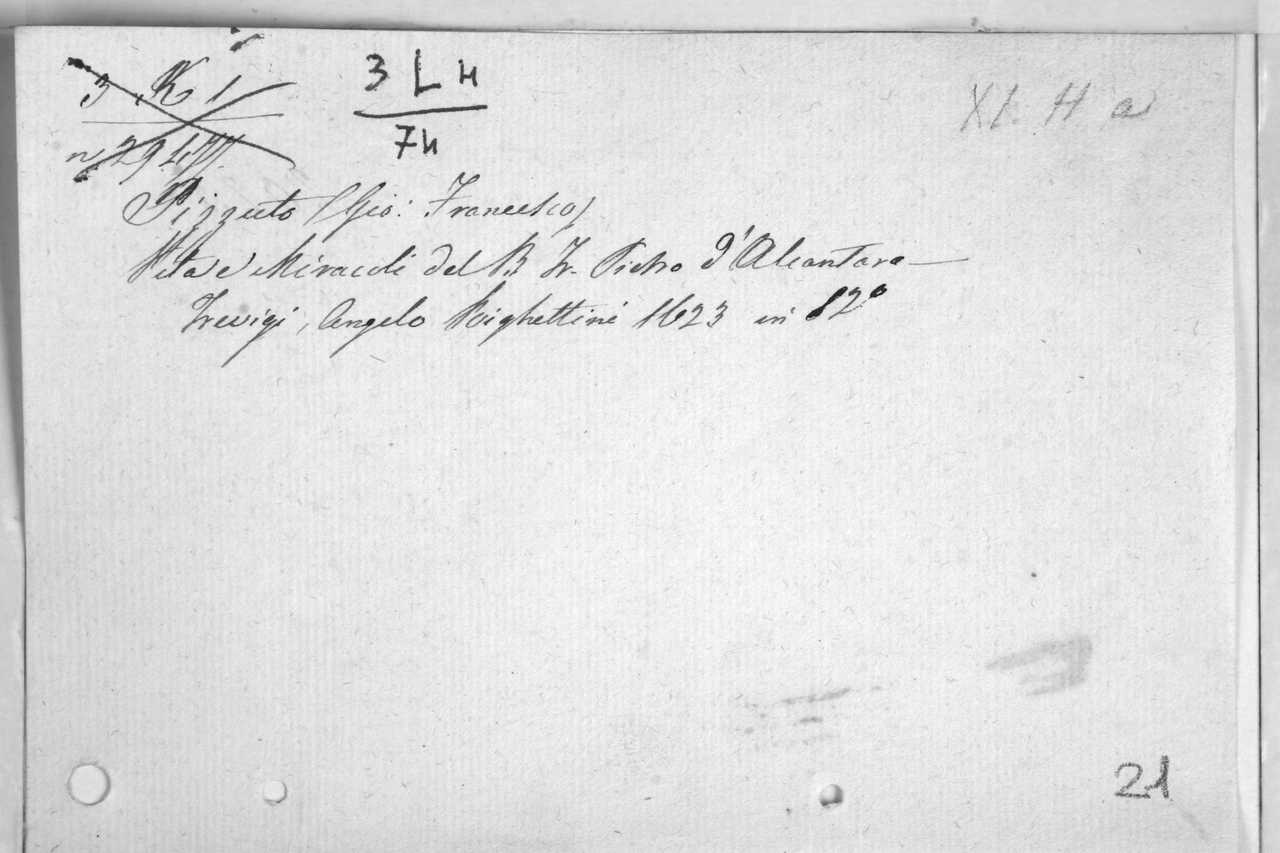 3 K 1
3 L 4
XI. H a
n 294
74
Pizzuto (Gio: Francesco)
Vita e Miracoli del B. Fr. Pietro d'Alcantara—
Trevigi, Angelo Righettini 1623 in 12°
21